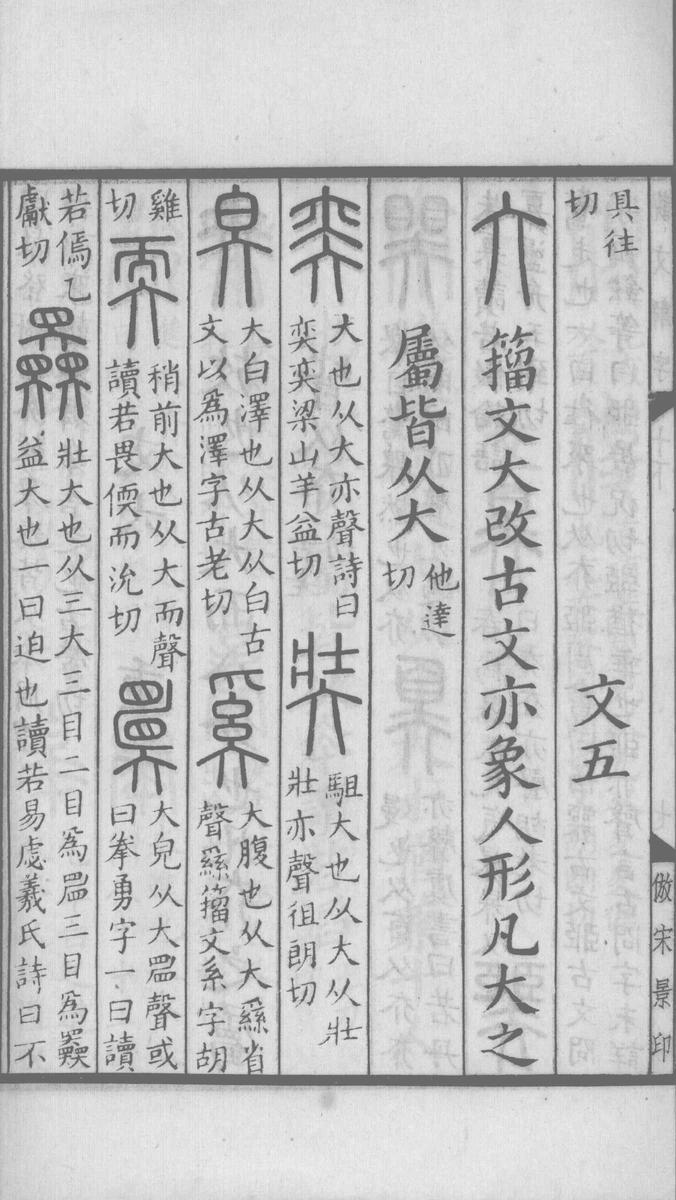 具往
切
文五
籒文大改古文亦象人形凡大之
屬皆从大
他達
切
大也从大亦聲詩曰
奕奕梁山羊益切
駔大也从大从壯
壯亦聲徂朗切
大白澤也从大从白古
文以為澤字古老切
大腹也从大𦃟省
聲𦃟籒文系字胡
雞
切
稍前大也从大而聲
讀若畏偄而沇切
大皃从大𥄎聲或
曰拳勇字一曰讀
若傿乙
獻切
壯大也从三大三目二目為𥄎三目為𡚤
益大也一曰迫也讀若易虙羲氏詩曰不
倣宋景印